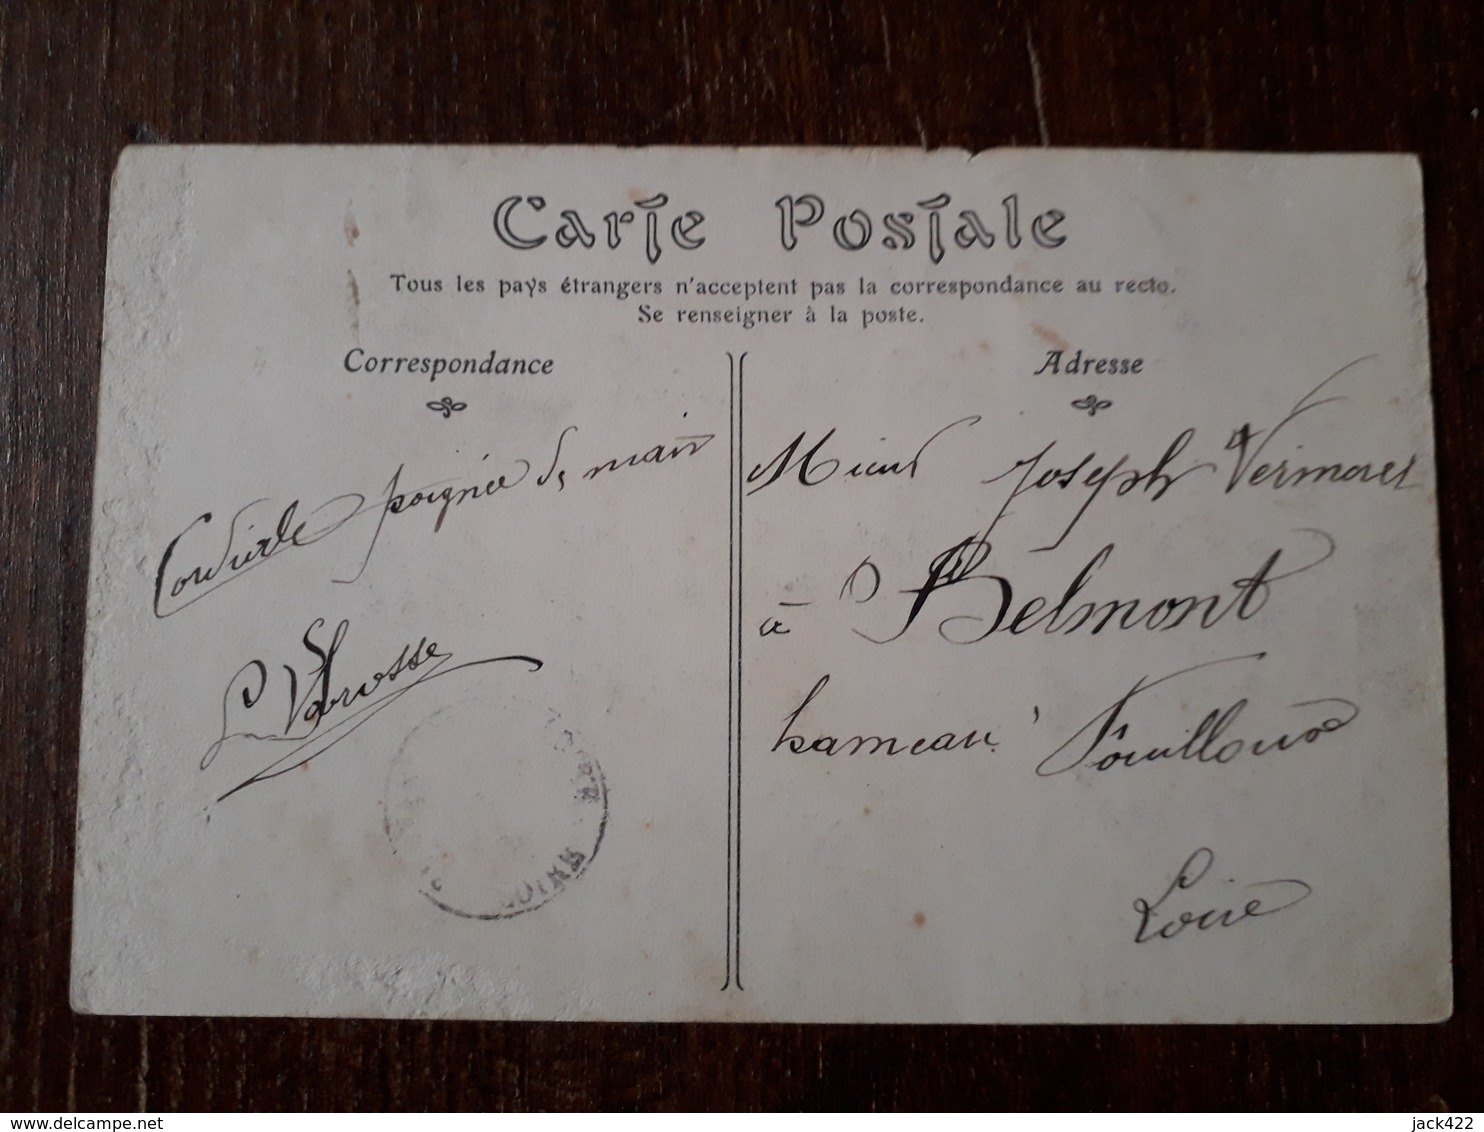 Carte Postale
Tous les pays étrangers n'acceptent pas la correspondance au recto.
Se renseigner à la poste.
Correspondance
Cordiale poignée de main
Adresse
Mieur Joseph Vermorel
à Belmont
hameau Fouilloux
Loire
delcampe.net
jack422